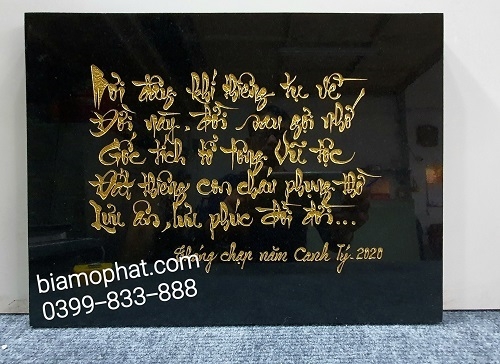 Nơi đây khí thiêng tụ về
Đời nay, đời sau gìn nhớ
Gốc tích tổ tông Vũ tộc
Đất thiêng con cháu phụng thờ
Lưu ân, lưu phúc đời đời...
Tháng chạp năm Canh Tý_2020
biamophat.com
0399-833-888